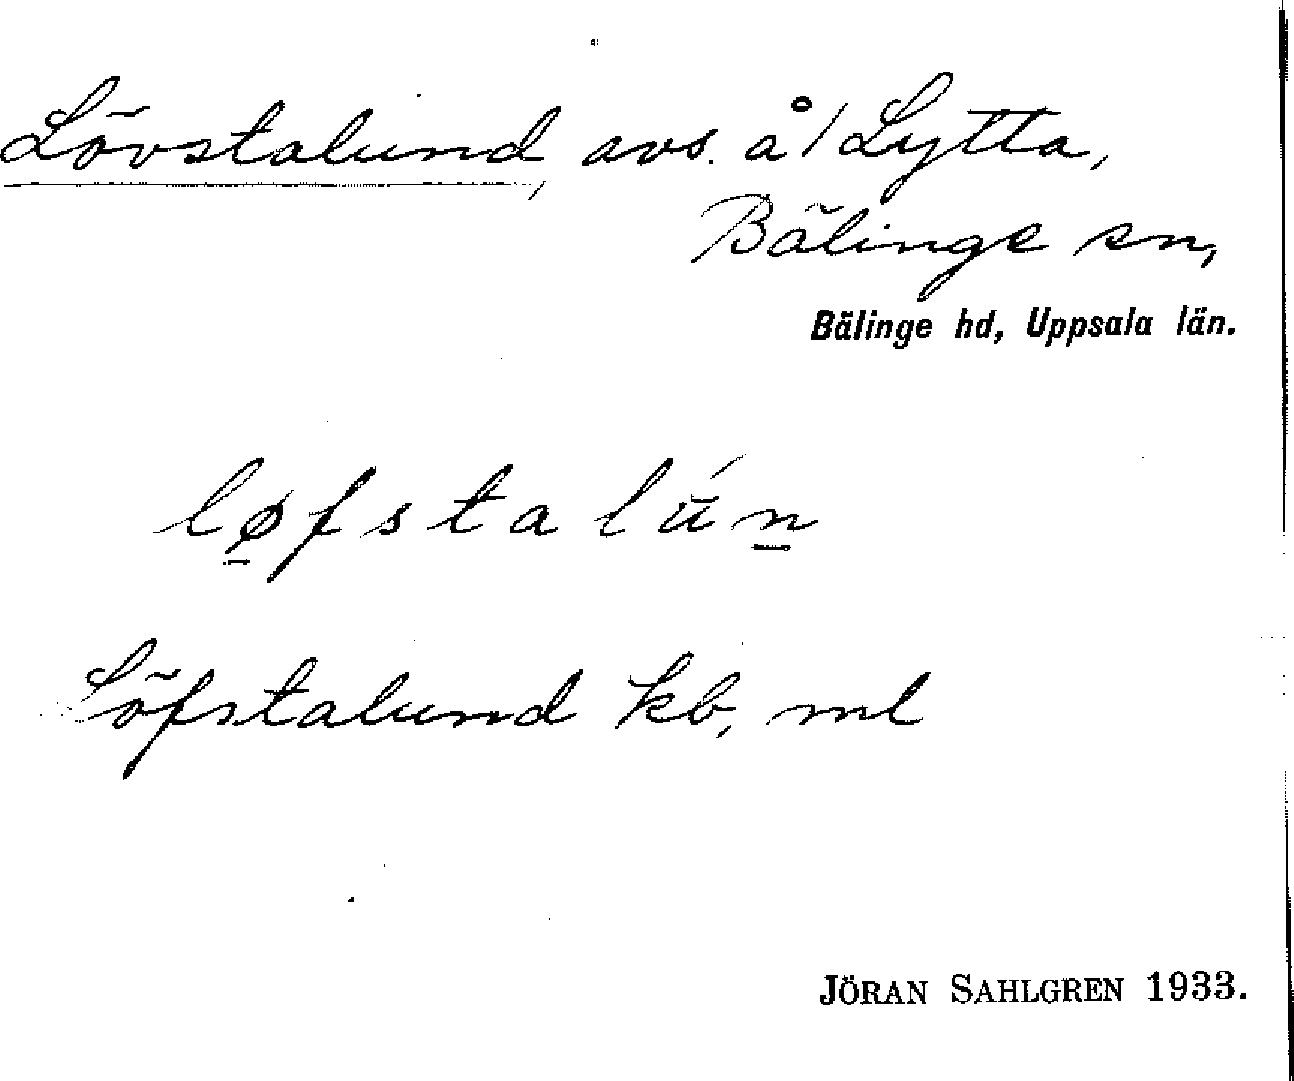 Lövstalund, avs. å/ Lytta,
Bälinge sn,
Bälinge hd, Uppsala län.
lø̱fstalū́ṉ
Löfstalund kb, ml
JÖRAN SAHLGREN 1933.